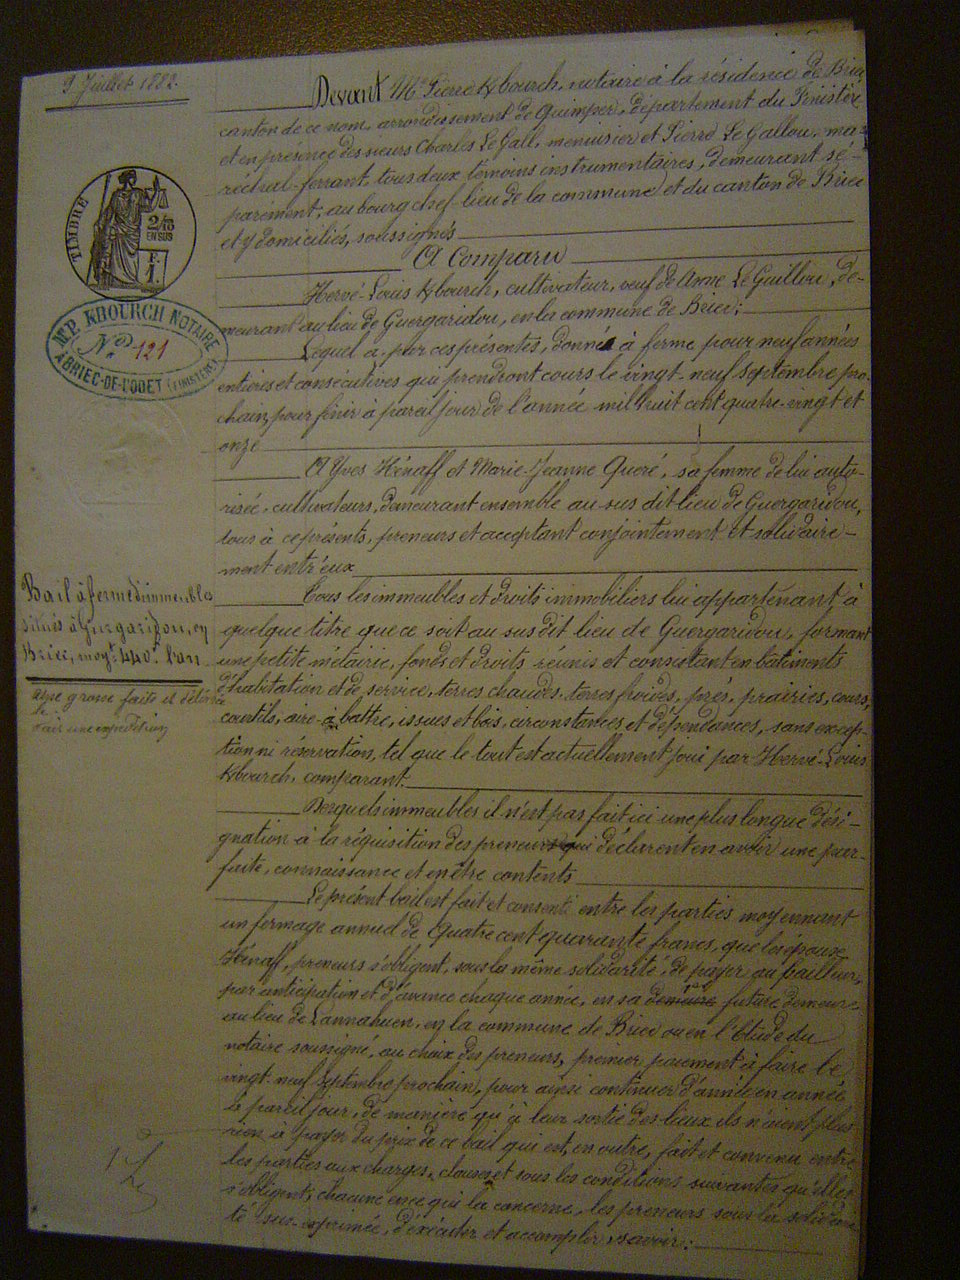 9 Juillet 1882.
TIMBRE
2/10
EN SUS
F.
1.
Mᵉ P. KBOURCH NOTAIRE
N° 121
A BRIEC-DE-L'ODET (FINISTÈRE)
Bail à ferme d'immeubles
situés à Guergaridou, en
Briec, moyt 440f l'an
Une grosse faite et délivrée
le
Fait une expédition
Devant Me Pierre Kbourch, notaire à la résidence de Briec
canton de ce nom, arrondissement de Quimper, département du Finistère
et en présence des sieurs Charles Le Gall, menuisier et Pierre Le Gallou, ma-
réchal-ferrant, tous deux témoins instrumentaires, demeurant sé-
parément, au bourg chef-lieu de la commune et du canton de Briec
et y domiciliés, soussignés
A Comparu
Hervé-Louis Kbourch, cultivateur, veuf de Anne Le Guillou, de-
meurant au lieu de Guergaridou, en la commune de Briec;
Lequel a, par ces présentes, donné à ferme pour neuf années
entières et consécutives qui prendront cours le vingt-neuf septembre pro-
chain, pour finir à pareil jour de l'année mil huit cent quatre-vingt et
onze
A Yves Hénaff et Marie-Jeanne Queré, sa femme de lui auto-
risée, cultivateurs, demeurant ensemble au sus dit lieu de Guergaridou,
tous à ce présents, preneurs et acceptant conjointement et solidaire-
ment entr'eux
Tous les immeubles et droits immobiliers lui appartenant, à
quelque titre que ce soit au sus dit lieu de Guergaridou, formant
une petite métairie, fonds et droits réunis et consistant en bâtiments
d'habitation et de service, terres chaudes, terres froides, prés, prairies, cours,
courtils, aire-à-battre, issues et bois, circonstances et dépendances, sans excep-
tion ni réservation, tel que le tout est actuellement joui par Hervé-Louis
Kbourch, comparant.
Desquels immeubles il n'est pas fait ici une plus longue dési-
gnation à la réquisition des preneurs qui déclarent en avoir une par-
faite, connaissance et en être contents
Le présent bail est fait et consenti entre les parties moyennant
un fermage annuel de Quatre cent quarante francs, que les époux
Hénaff, preneurs s'obligent, sous la même solidarité, de payer au bailleur,
par anticipation et d'avance chaque année, en sa demeure future demeure
au lieu de Lannahuen, en la commune de Briec ou en l'Etude du
notaire soussigné, au choix des preneurs, premier paiement à faire le
vingt neuf Septembre prochain, pour ainsi continuer d'année en année
à pareil jour, de manière qu'à leur sortie des lieux ils n'aient plus
rien à payer du prix de ce bail qui est, en outre, fait et convenu entre
les parties aux charges, clauses et sous les conditions suivantes qu'elles
s'obligent, chacune en ce qui la concerne, les preneurs sous la solidari
té sus-exprimée, d'exécuter et accomplir, savoir: